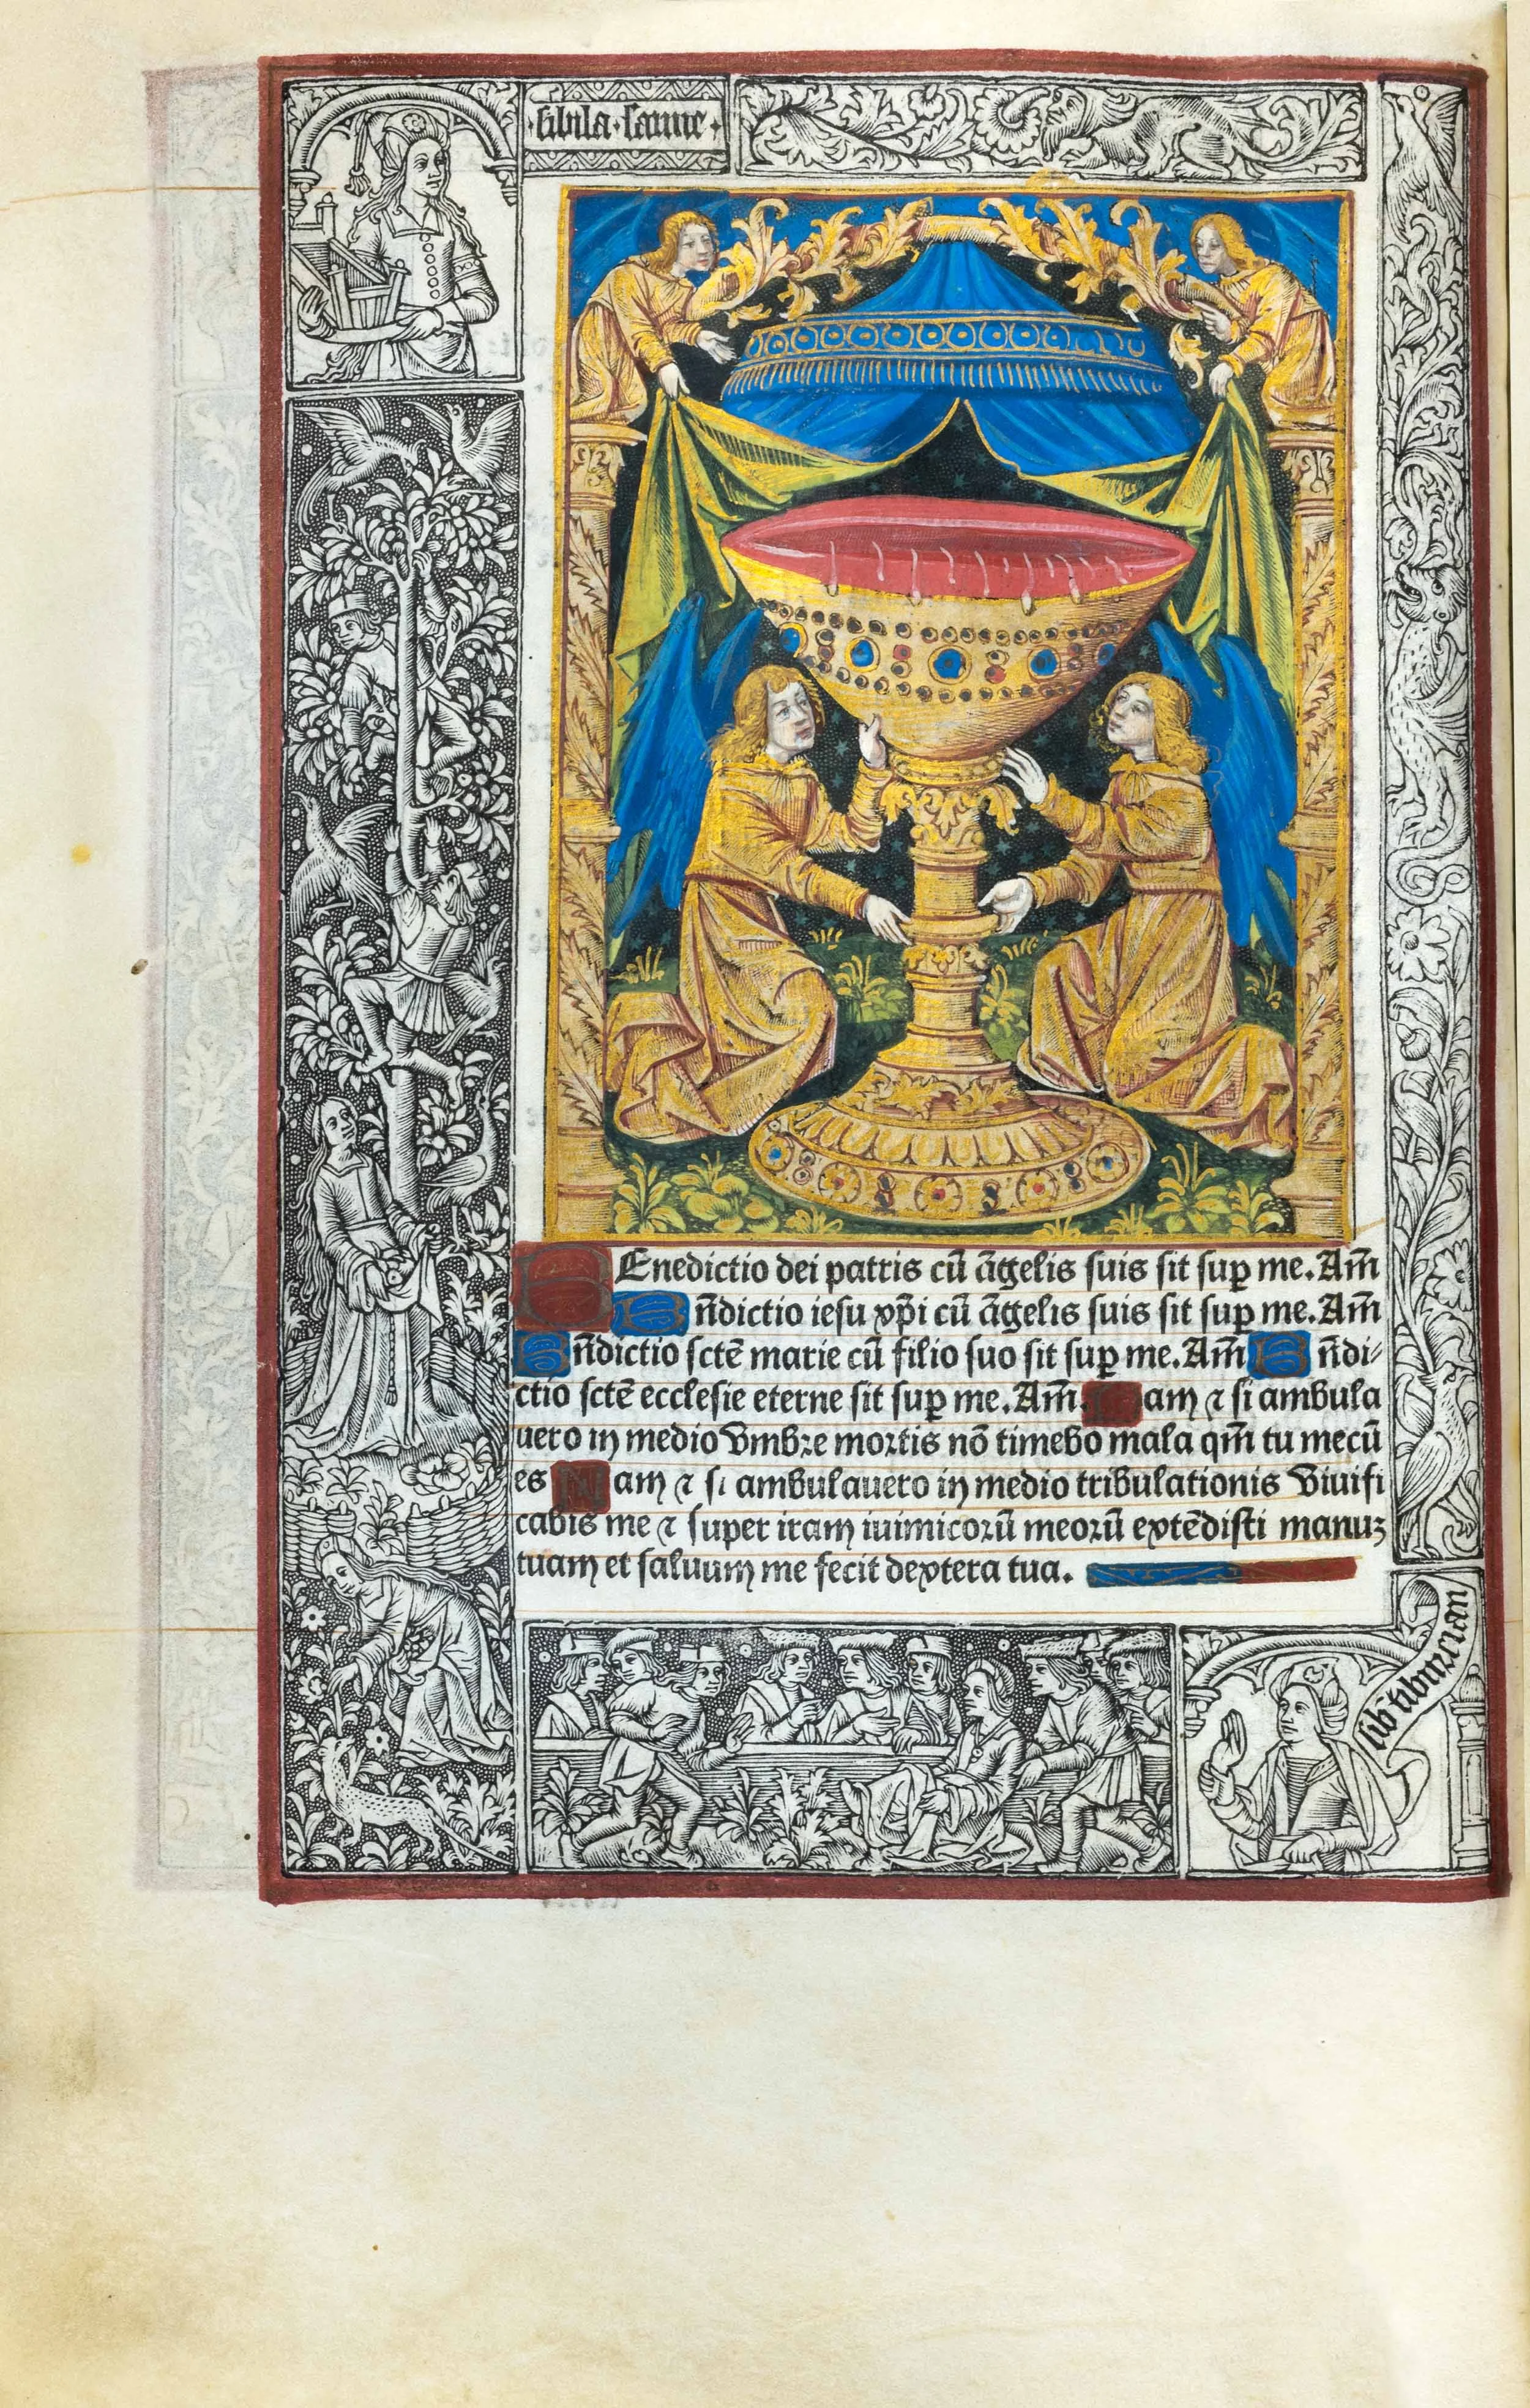 sibila·samie·
BEnedictio dei patris cū āgelis suis sit sup̱ me. Am̄
Bn̄dictio iesu xp̄i cū āgelis suis sit sup̱ me. Am̄
Bn̄dictio sctē marie cū filio suo sit sup̱ me. Am̄ Bn̄di⸗
ctio sctē ecclesie eterne sit sup̱ me. Am̄. Nam ⁊ si ambula
uero in medio vmbre mortis nō timebo mala qm̄ tu mecū
es Nam ⁊ si ambulauero in medio tribulationis viuifi
cabis me ⁊ super iram iuimicorū meorū extēdisti manuꝫ
tuam et saluum me fecit dextera tua.